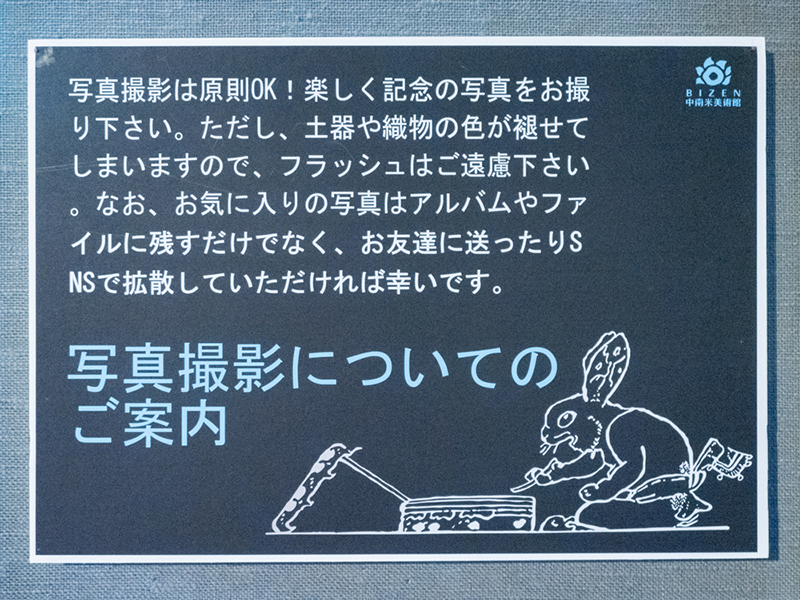 写真撮影は原則OK！楽しく記念の写真をお撮
り下さい。ただし、土器や織物の色が褪せて
しまいますので、フラッシュはご遠慮下さい
。なお、お気に入りの写真はアルバムやファ
イルに残すだけでなく、お友達に送ったりS
NSで拡散していただければ幸いです。
写真撮影についての
ご案内
BIZEN
中南米美術館